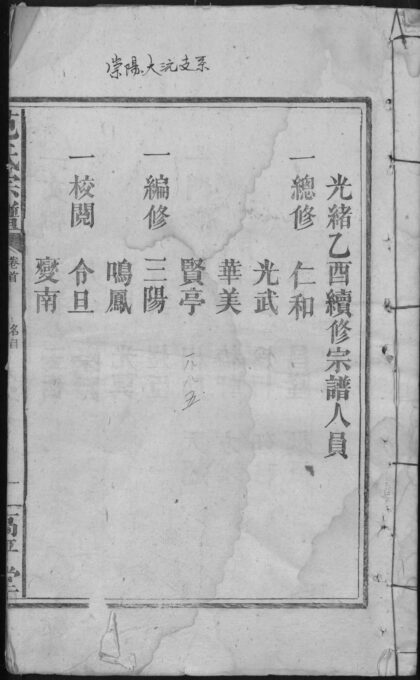 崇陽大沅支系
光緒乙酉續修宗譜人員
一總修 仁和
光武
華美
賢亭
一編修 三陽
鳴鳳
一校閱 令旦
變南
一八八五
氏宗譜
卷首
名目
高平堂